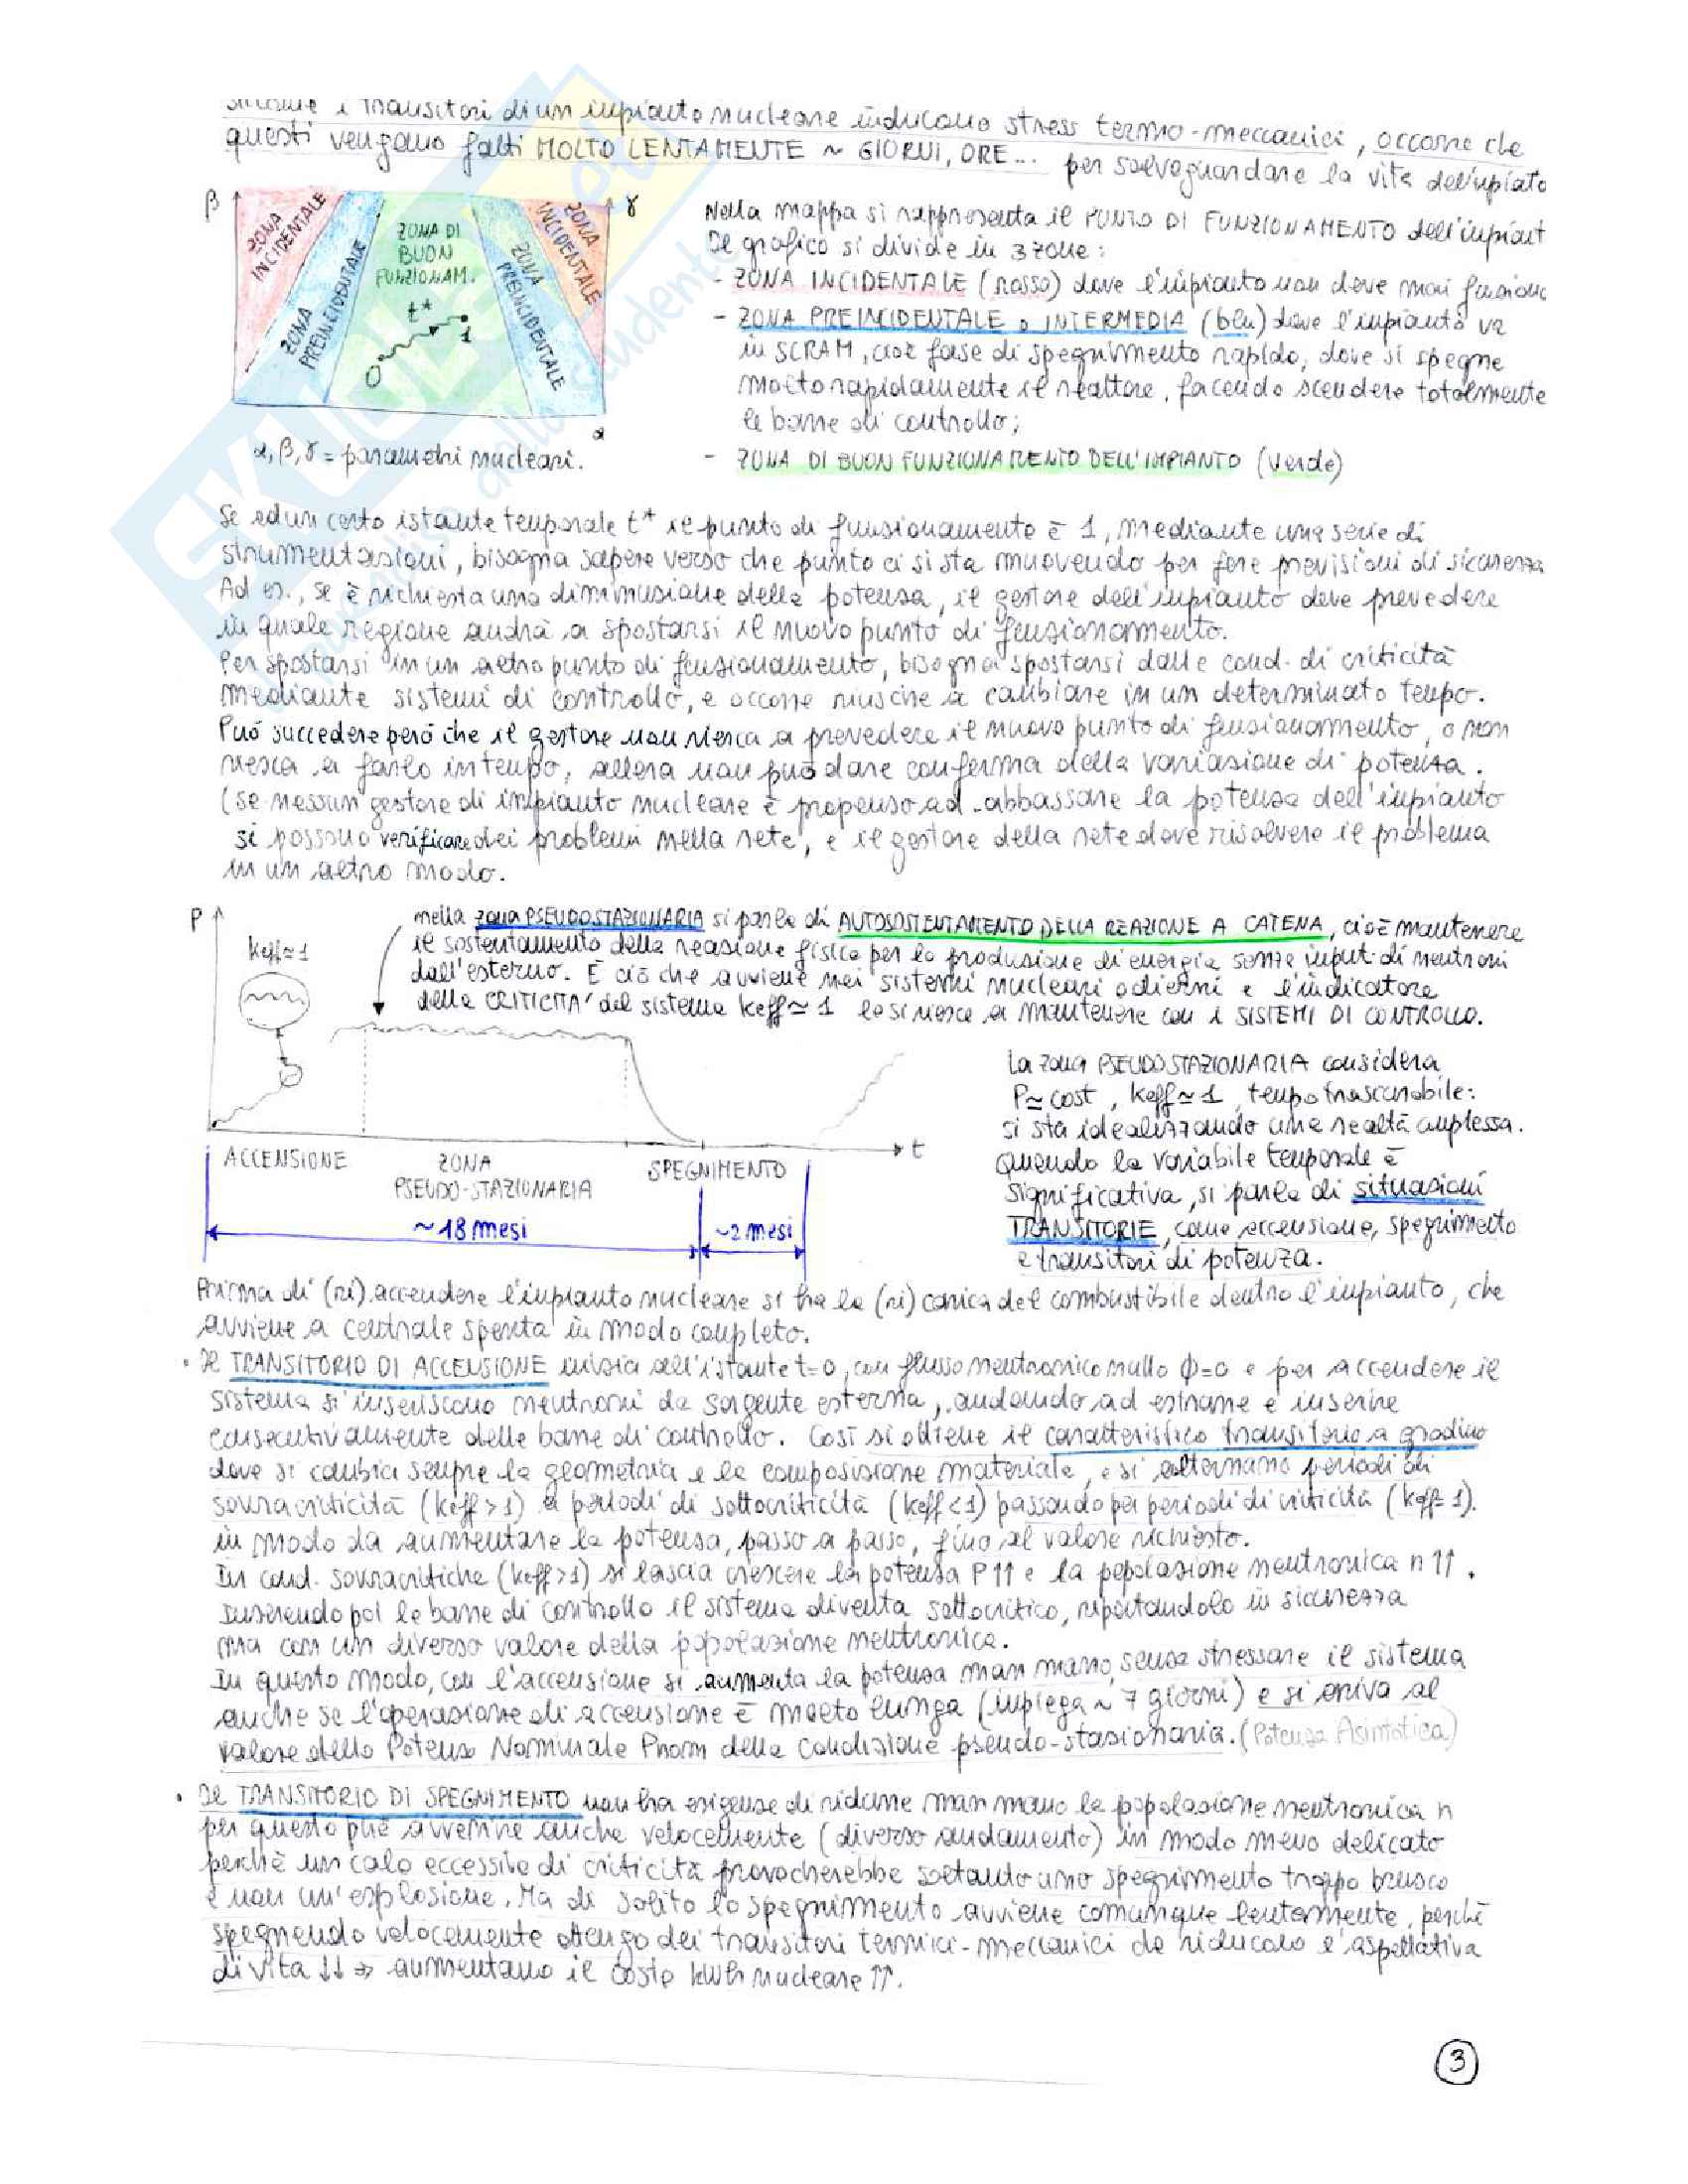 Siccome i transitori di un impianto nucleare inducono stress termo-meccanici, occorre che
questi vengano fatti MOLTO LENTAMENTE ~ GIORNI, ORE... per salvaguardare la vita dell'inpiato
β
ZONA INCIDENTALE
ZONA PREINCIDENTALE
ZONA DI BUON FUNZIONAM.
t*
0
1
ZONA PREINCIDENTALE
ZONA INCIDENTALE
γ
α
α, β, γ = parametri nucleari.
Nella mappa si rappresenta il PUNTO DI FUNZIONAMENTO dell'impiant
Il grafico si divide in 3 zone:
- ZONA INCIDENTALE (rosso) dove l'impianto non deve mai funzion
- ZONA PREINCIDENTALE o INTERMEDIA (blu) dove l'impianto va
in SCRAM, cioè fase di spegnimento rapido, dove si spegne
molto rapidamente il reattore, facendo scendere totalmente
le barre di controllo;
- ZONA DI BUON FUNZIONAMENTO DELL'IMPIANTO (verde)
Se ad un certo istante temporale t* il punto di funzionamento è 1, mediante una serie di
strumentazioni, bisogna sapere verso che punto ci si sta muovendo per fare previsioni di sicurezza
Ad es., se è richiesta una diminuzione della potenza, il gestore dell'impianto deve prevedere
in quale regione andrà a spostarsi il nuovo punto di funzionamento.
Per spostarsi in un altro punto di funzionamento, bisogna spostarsi dalle cond. di criticità
mediante sistemi di controllo, e occorre riuscire a cambiare in un determinato tempo.
Può succedere però che il gestore non riesca a prevedere il nuovo punto di funzionamento, o non
riesca a farlo in tempo, allora non può dare conferma della variazione di potenza.
(se nessun gestore di impianto nucleare è propenso ad abbassare la potenza dell'impianto
si possono verificare dei problemi nella rete, e il gestore della rete deve risolvere il problema
in un altro modo.
P
keff≃1
nella zona PSEUDOSTAZIONARIA si parla di AUTOSOSTENTAMENTO DELLA REAZIONE A CATENA, cioè mantenere
il sostentamento della reazione fisica per la produzione di energia senza input di neutroni
dall'esterno. È ciò che avviene nei sistemi nucleari odierni e l'indicatore
della CRITICITA' del sistema keff≃1 lo si riesce a mantenere con i SISTEMI DI CONTROLLO.
t
ACCENSIONE
ZONA PSEUDO-STAZIONARIA
SPEGNIMENTO
~18 mesi
~2 mesi
La zona PSEUDOSTAZIONARIA considera
P≃cost, keff≃1, tempo trascurabile:
si sta idealizzando una realtà complessa.
Quando la variabile temporale è
significativa, si parla di situazioni
TRANSITORIE, come accensione, spegnimento
e transitori di potenza.
Prima di (ri)accendere l'impianto nucleare si ha la (ri)carica del combustibile dentro l'impianto, che
avviene a centrale spenta in modo completo.
• Il TRANSITORIO DI ACCENSIONE inizia all'istante t=0, con flusso neutronico nullo ϕ=0 e per accendere il
sistema si inseriscono neutroni da sorgente esterna, andando ad estrarre e inserire
consecutivamente delle barre di controllo. Così si ottiene il caratteristico transitorio a gradino
dove si cambia sempre la geometria e la composizione materiale, e si alternano periodi di
sovracriticità (keff>1) a periodi di sottocriticità (keff<1) passando per periodi di criticità (keff=1).
in modo da aumentare la potenza, passo a passo, fino al valore richiesto.
In cond. sovracritiche (keff>1) si lascia crescere la potenza P↑↑ e la popolazione neutronica n↑↑.
Inserendo poi le barre di controllo il sistema diventa sottocritico, riportandolo in sicurezza
ma con un diverso valore della popolazione neutronica.
In questo modo, con l'accensione si aumenta la potenza man mano, senza stressare il sistema
anche se l'operazione di accensione è molto lunga (impiega ~ 7 giorni) e si arriva al
valore della Potenza Nominale Pnom della condizione pseudo-stazionaria. (Potenza Asintotica)
• Il TRANSITORIO DI SPEGNIMENTO non ha esigenze di ridurre man mano la popolazione neutronica n
per questo può avvenire anche velocemente (diverso andamento) in modo meno delicato
perchè un calo eccessivo di criticità provocherebbe soltanto uno spegnimento troppo brusco
e non un'esplosione. Ma di solito lo spegnimento avviene comunque lentamente, perchè
spegnendo velocemente ottengo dei transitori termici-meccanici che riducono l'aspettativa
di vita ↓↓ ⇒ aumentano il costo kWh nucleare ↑↑.
3